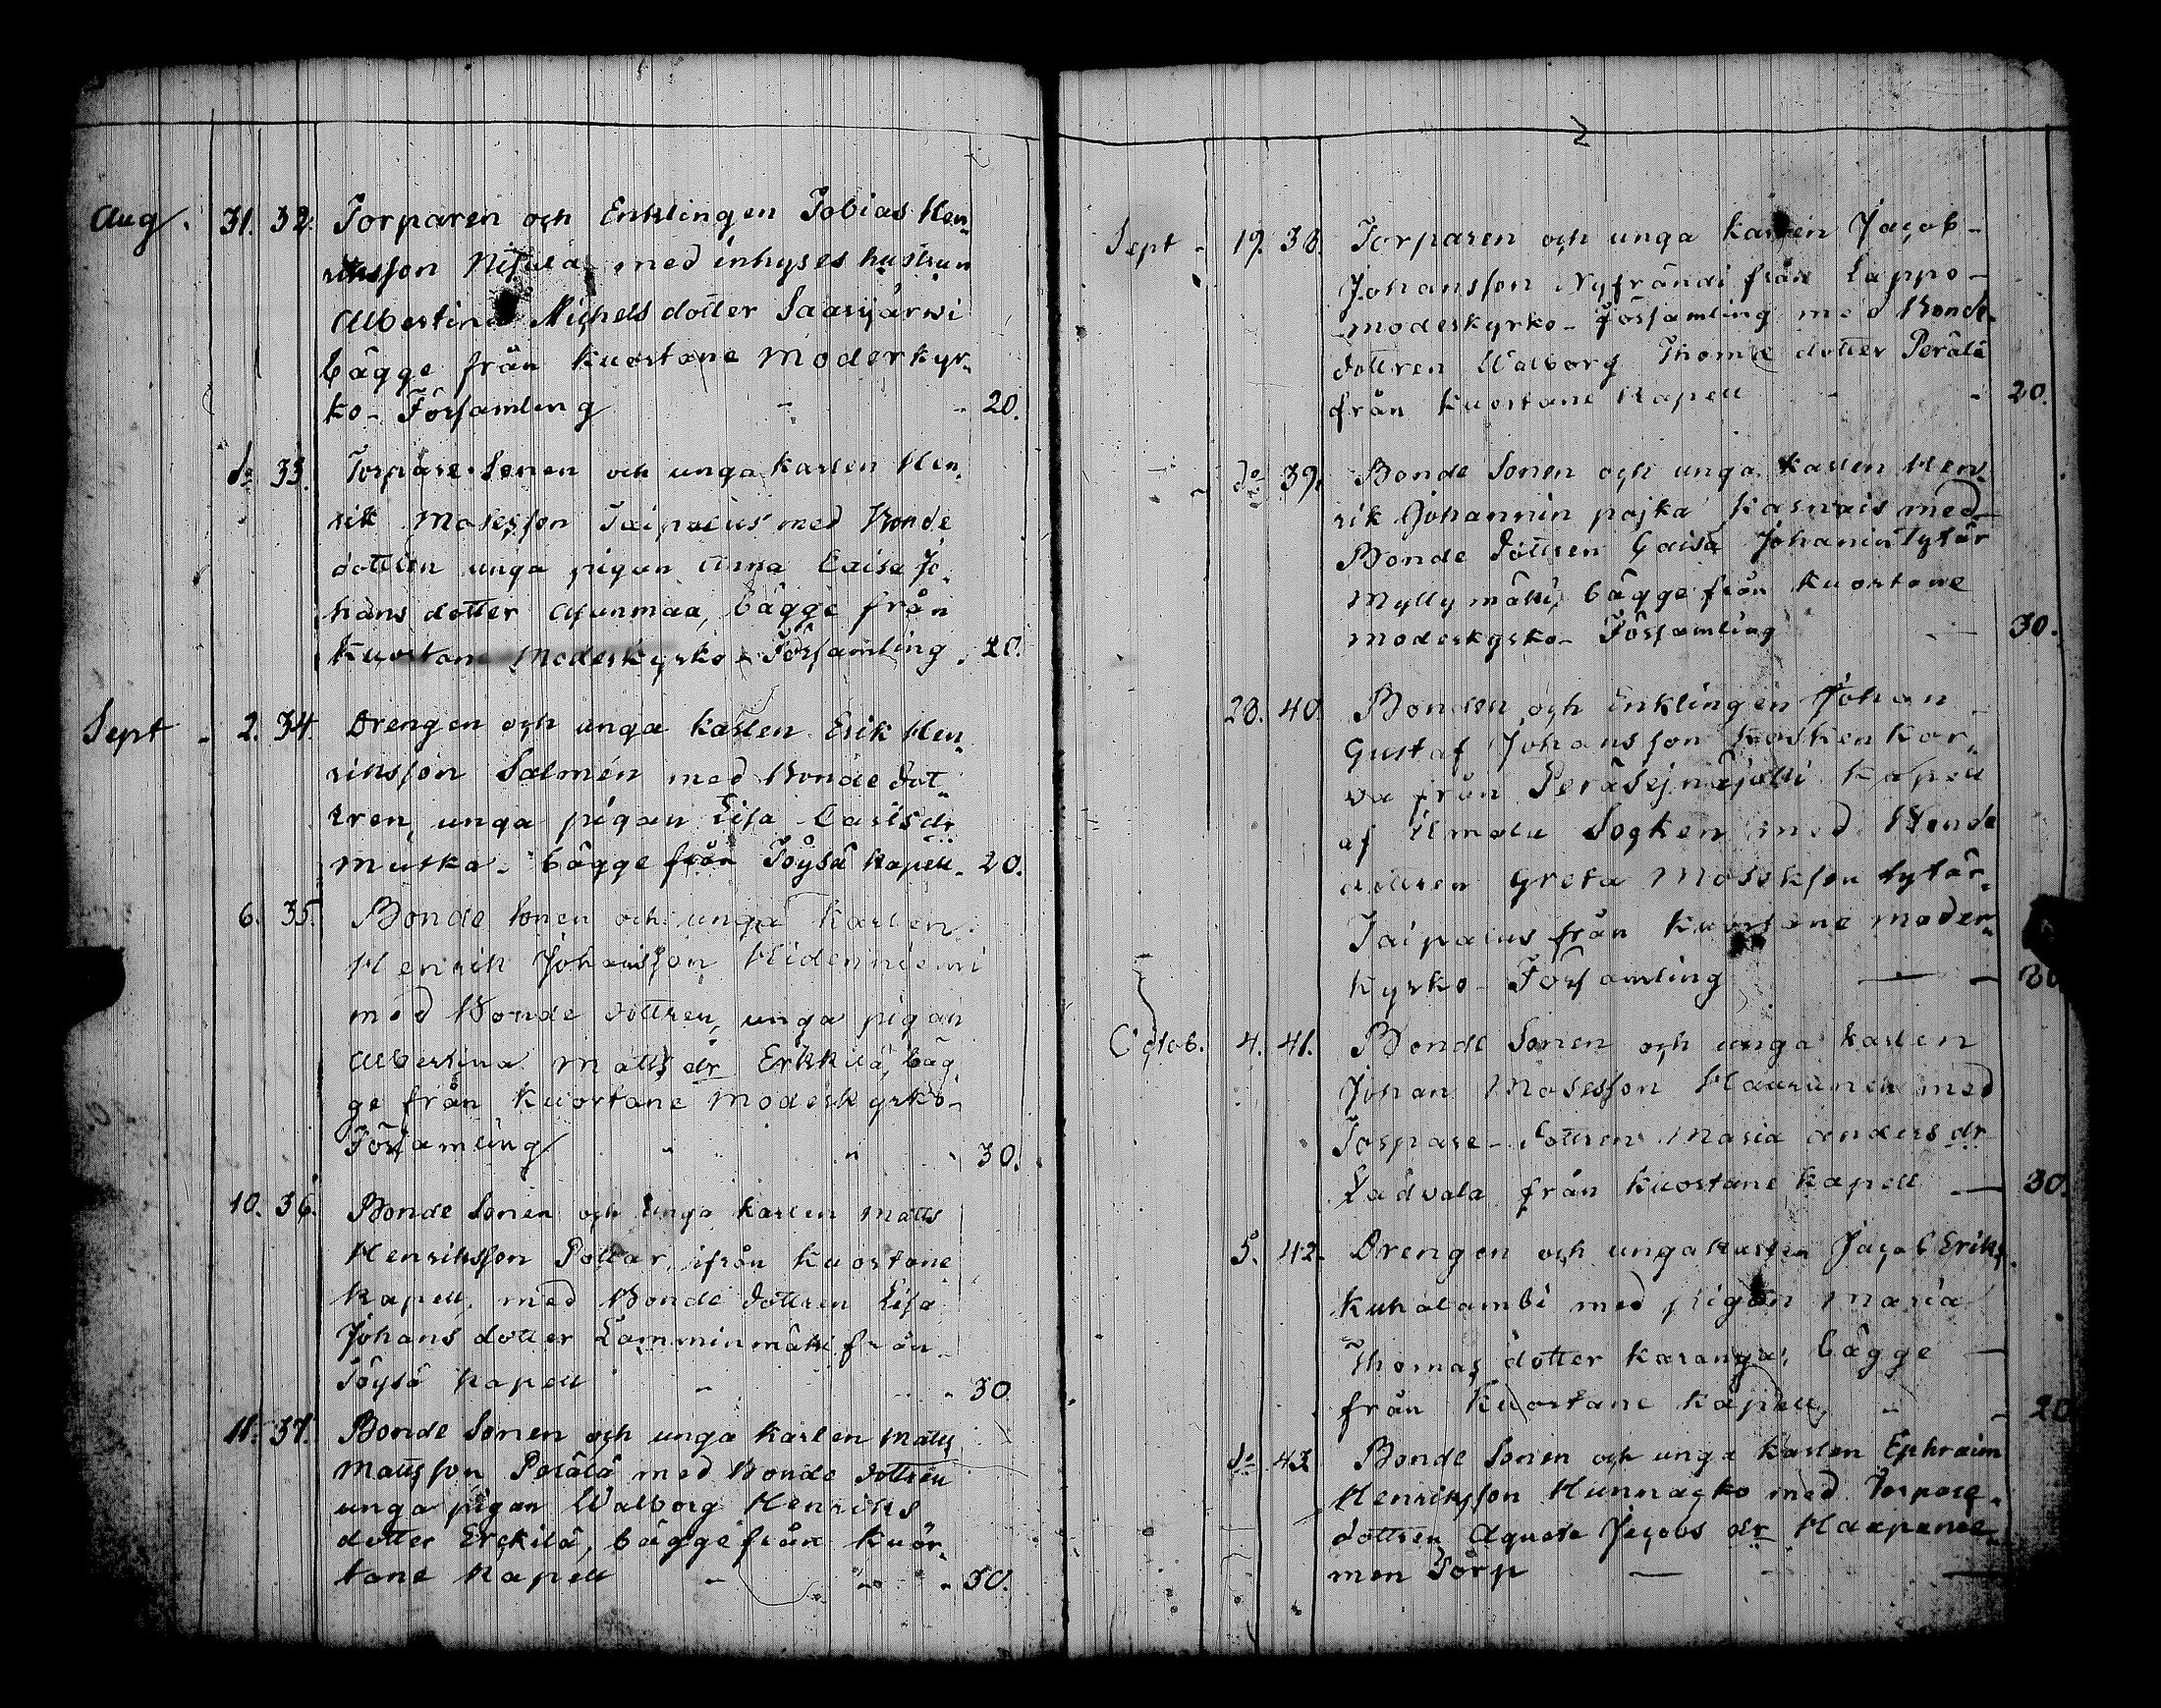 Aug. 31. 32. Torparen och Enklingen Tobias Hen-
riksson Nisula med inhyses hustrun
Albertina Michels dotter Saarijärwi
bägge från Kuortane Moderkyr-
ko- Församling - - 20.
do 33. Torpare Sonen och unga karlen Hen-
rik Mosesson Taipalus med Bonde
dottren unga pigan Anna Caisa Jo-
hans dotter Asunmaa, bägge från
Kuortane Moderkyrko- Församling. 20.
Sept - 2. 34. Drengen och unga karlen Erik Hen-
riksson Salmén med Bonde dot-
tren, unga pigan Lisa Carlsdr
Mutka- bägge från Töysä Kapell. 20.
6. 35. Bonde Sonen och unga karlen
Henrik Johansson Hidenniemi
med Bonde dottren, unga pigan
Albertina Matts dr Erkkilä, bäg
ge från Kuortane Moderkyrko-
Församling " " 30.
10. 36. Bonde Sonen och unga karlen Matts
Henriksson Pollar, ifrån Kuortane
Kapell, med Bonde dottren Lisa
Johans dotter Lamminmäki från
Töysä Kapell - - 30
11. 37. Bonde Sonen och unga karlen Matts
Mattsson Perälä med Bonde dottren
unga pigan Walborg Henriks
dotter Erckilä, bägge från Kuor-
tane Kapell - - 30.
2
Sept - 19. 38. Torparen och unga karlen Jacob-
Johansson Nyfrändi från Lappo-
moderkyrko- Församling med Bonde-
dottren Walborg Thomæ dotter Perälä
från Kuortane Kapell - - 20.
do 39. Bonde Sonen och unga karlen Hen
rik Johannin pojka Kasnais med
Bonde dottren Caisa Johanin tytär
Myllymäki, bägge från Kuortane
moderkyrko- Församling - 30.
28. 40. Bonden och Enklingen Johan
Gustaf Johansson Koskenkor-
va från Peräsejnäjoki Kapell
af Ilmola Socken med Bonde
dottren Greta Mosesson tytär-
Taipalus från Kuortane moder-
kyrko- Församling - - 30
Octob. 4. 41. Bonde Sonen och unga karlen
Johan Mosesson Haurunen med
Torpare- dottren Maria Anders dr
Ladvala från Kuortane Kapell - 30.
5. 42. Drengen och unga karlen Jacob Eriks
Kuhalambi med pigan Maria
Thomas dotter Karanga, bägge -
från Kuortane Kapell, - - 20
do 43 Bonde Sonen och unga karlen Ephraim
Henriksson Hunnacko med Torpare-
dottren Agneta Jacobs dr Haapanie-
men Torp - - -